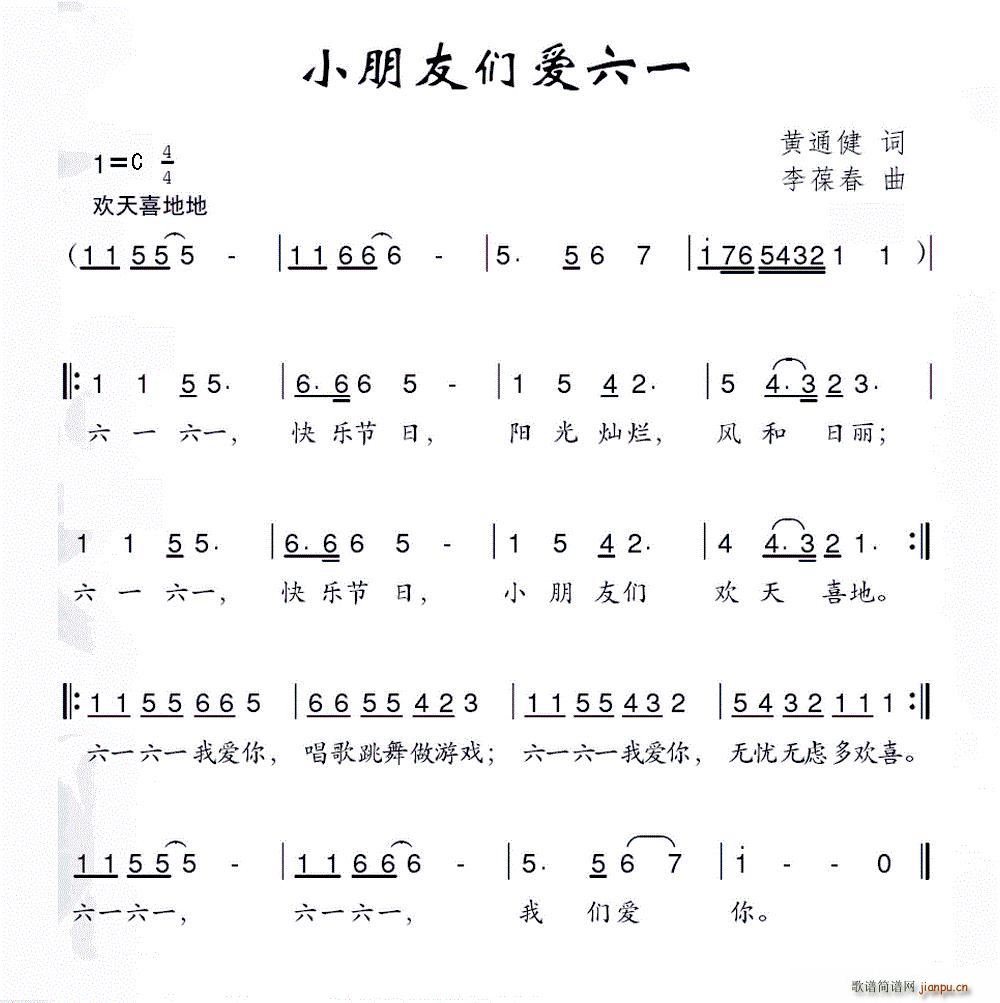 小朋友们爱六一
黄通健 词
1=C 4/4
李葆春 曲
欢天喜地地
(1 1 5 5 5 - | 1 1 6 6 6 - | 5. 5 6 7 | i 7 6 5 4 3 2 1 1 )|
|: 1 1 5 5. | 6. 6 6 5 - | 1 5 4 2. | 5 4. 3 2 3. |
六 一 六一, 快乐节日, 阳光灿烂, 风和日丽;
1 1 5 5. | 6. 6 6 5 - | 1 5 4 2. | 4 4. 3 2 1. :|
六 一 六一, 快乐节日, 小朋友们 欢天喜地。
|: 1 1 5 5 6 6 5 | 6 6 5 5 4 2 3 | 1 1 5 5 4 3 2 | 5 4 3 2 1 1 1 :|
六一六一我爱你, 唱歌跳舞做游戏; 六一六一我爱你, 无忧无虑多欢喜。
1 1 5 5 5 - | 1 1 6 6 6 - | 5. 5 6 7 | i - - 0 |
六一六一, 六一六一, 我 们爱 你。
歌谱简谱网 jianpu.cn